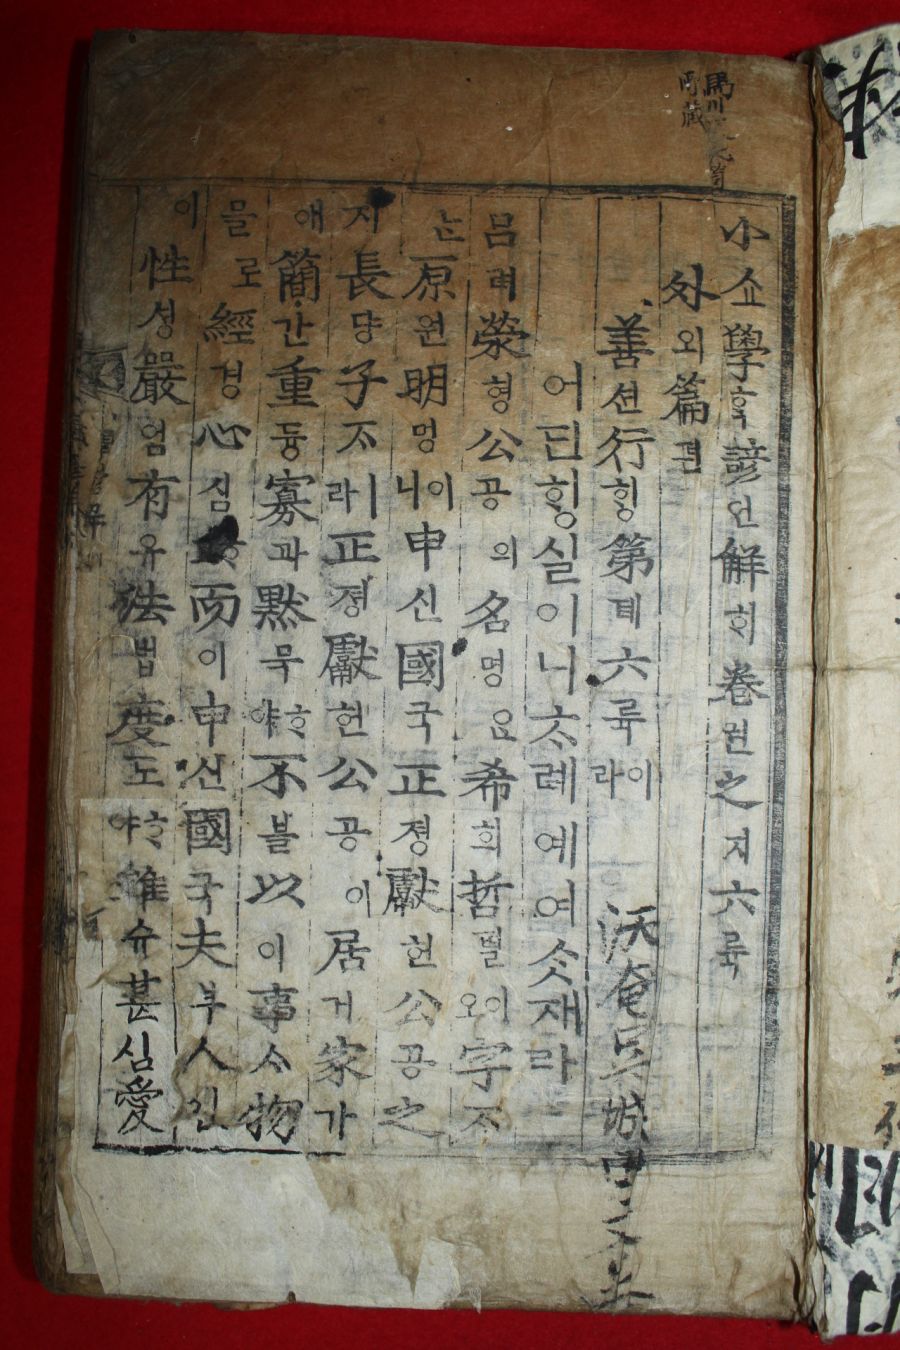 小쇼學ᄒᆞᆨ諺언解ᄒᆡ卷권之지六륙
外외篇편
善션行ᄒᆡᆼ第뎨六륙이라
어딘ᄒᆡᆼ실이니ᄎᆞ례예여ᄉᆞᆺ재라
呂려滎형公공의名명은希희哲텰이오字ᄌᆞ
ᄂᆞᆫ原원明명이니申신國국正졍獻헌公공之
지長댱子ᄌᆞㅣ라正졍獻헌公공이居거家가
애簡간重듕寡과默묵ᄒᆞ야不블以이事ᄉᆞ物
믈로經경心심而이申신國국夫부人인
이性셩嚴엄有유法법度도ᄒᆞ야雖슈甚심愛